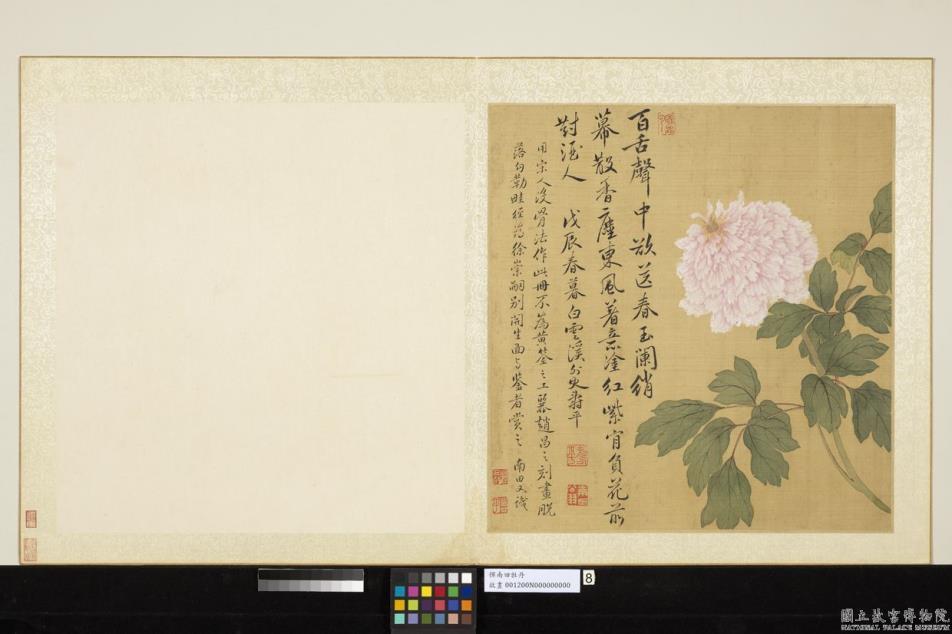 百舌聲中欲送春玉闌綃
幕散香塵東風着意塗紅紫肯負花前
對酒人 戊辰春暮白雲溪外史壽平
用宋人沒骨法作此冊不為黃筌之工麗趙昌之刻畫脫
落勾勒畦徑為徐崇嗣別開生面與鑒者賞之 南田又識
惲南田牡丹
故畫 001200N000000000
8
國立故宮博物院
NATIONAL PALACE MUSEUM